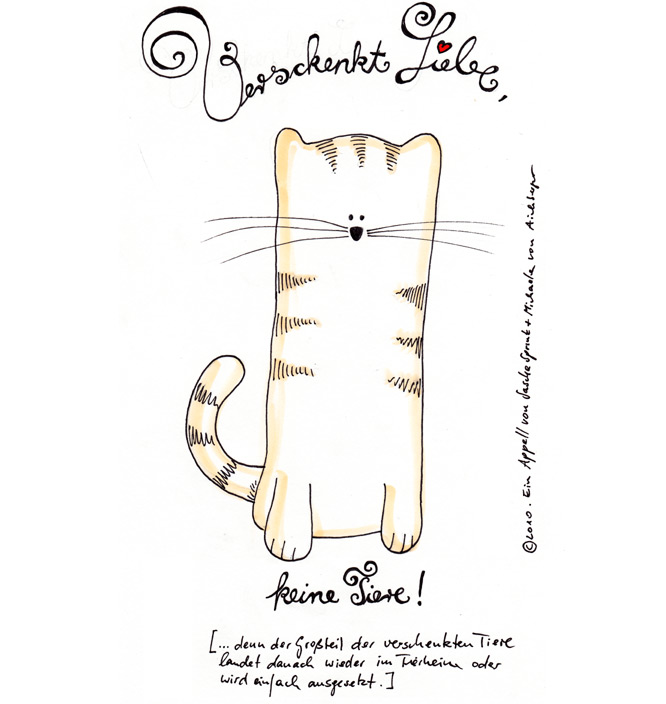 Verschenkt Liebe,
keine Tiere!
[... denn der Großteil der verschenkten Tiere
landet danach wieder im Tierheim oder
wird einfach ausgesetzt.]
©2010. Ein Appell von Sascha Sprunk + Michaela von Aichberger